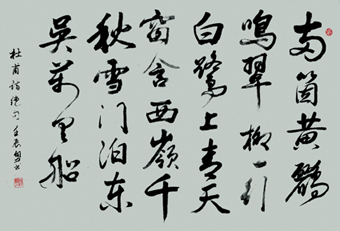 两箇黄鸝
鳴翠柳一行
白鷺上青天
窗含西嶺千
秋雪门泊东
吴萬里船
杜甫诗绝句壬辰